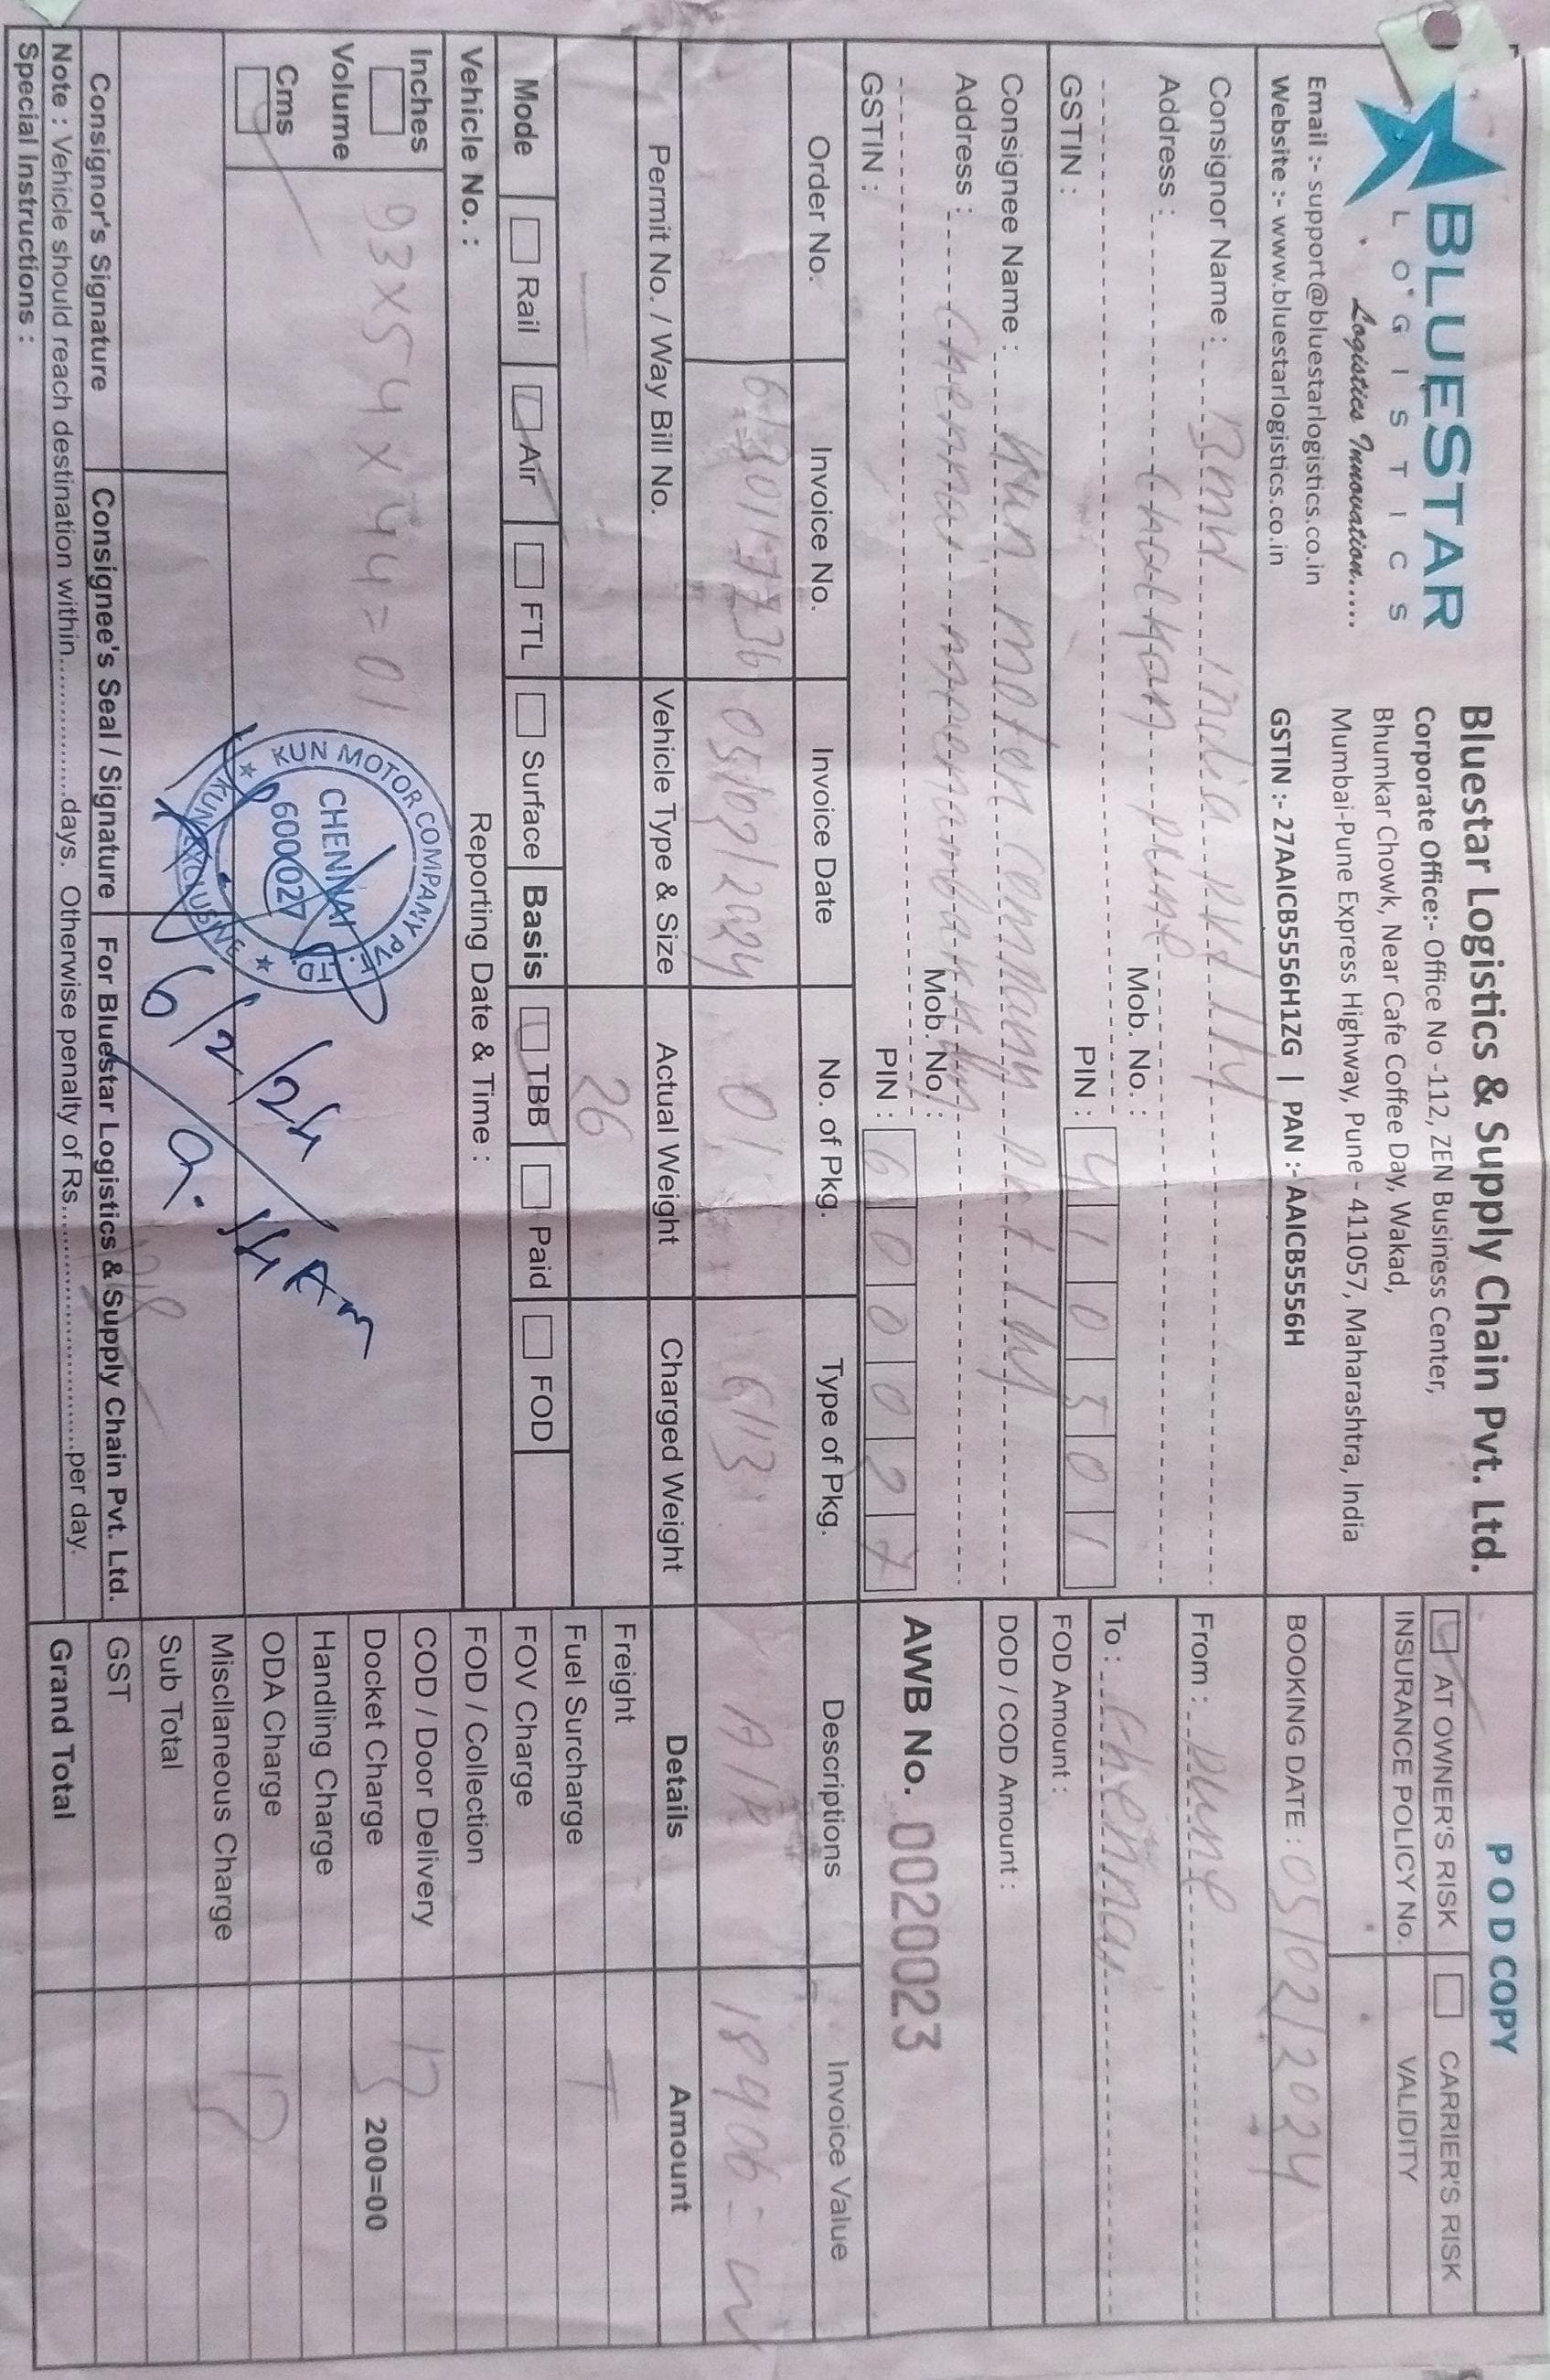 BLUESTAR
LOGISTICS
Logistics Innovation.....
Email :- support@bluestarlogistics.co.in
Website :- www.bluestarlogistics.co.in
Bluestar Logistics & Supply Chain Pvt. Ltd.
Corporate Office:- Office No -112, ZEN Business Center,
Bhumkar Chowk, Near Cafe Coffee Day, Wakad,
Mumbai-Pune Express Highway, Pune - 411057, Maharashtra, India
GSTIN :- 27AAICB5556H1ZG | PAN :- AAICB5556H
POD COPY
AT OWNER'S RISK CARRIER'S RISK
INSURANCE POLICY No. VALIDITY
BOOKING DATE : 05/02/2024
Consignor Name : BMW india pvt
Address : pune
Mob. No. :
GSTIN : PIN : 410501
From : pune
To : chennai
FOD Amount :
DOD / COD Amount :
Consignee Name : Kun motor company
Address : Chennai
Mob. No. :
GSTIN : PIN : 600027
AWB No. 0020023
Order No. Invoice No. Invoice Date No. of Pkg. Type of Pkg. Descriptions Invoice Value
05/02/2024 01 A/P 18906
Permit No. / Way Bill No. Vehicle Type & Size Actual Weight Charged Weight Details Amount
26
Freight
Fuel Surcharge
Mode Rail Air FTL Surface Basis TBB Paid FOD
FOV Charge
Vehicle No. : Reporting Date & Time :
FOD / Collection
COD / Door Delivery
Docket Charge 200=00
Handling Charge
ODA Charge
Miscllaneous Charge
Sub Total
GST
Grand Total
Inches
Volume
Cms
93x54x44=01
KUN MOTOR COMPANY PVT. LTD.
CHENNAI
600 027
★ KUN EXCLUSIVE ★
6/2/24
9.14 Am
Consignor's Signature Consignee's Seal / Signature For Bluestar Logistics & Supply Chain Pvt. Ltd.
Note : Vehicle should reach destination within.................days. Otherwise penalty of Rs..............................per day.
Special Instructions :